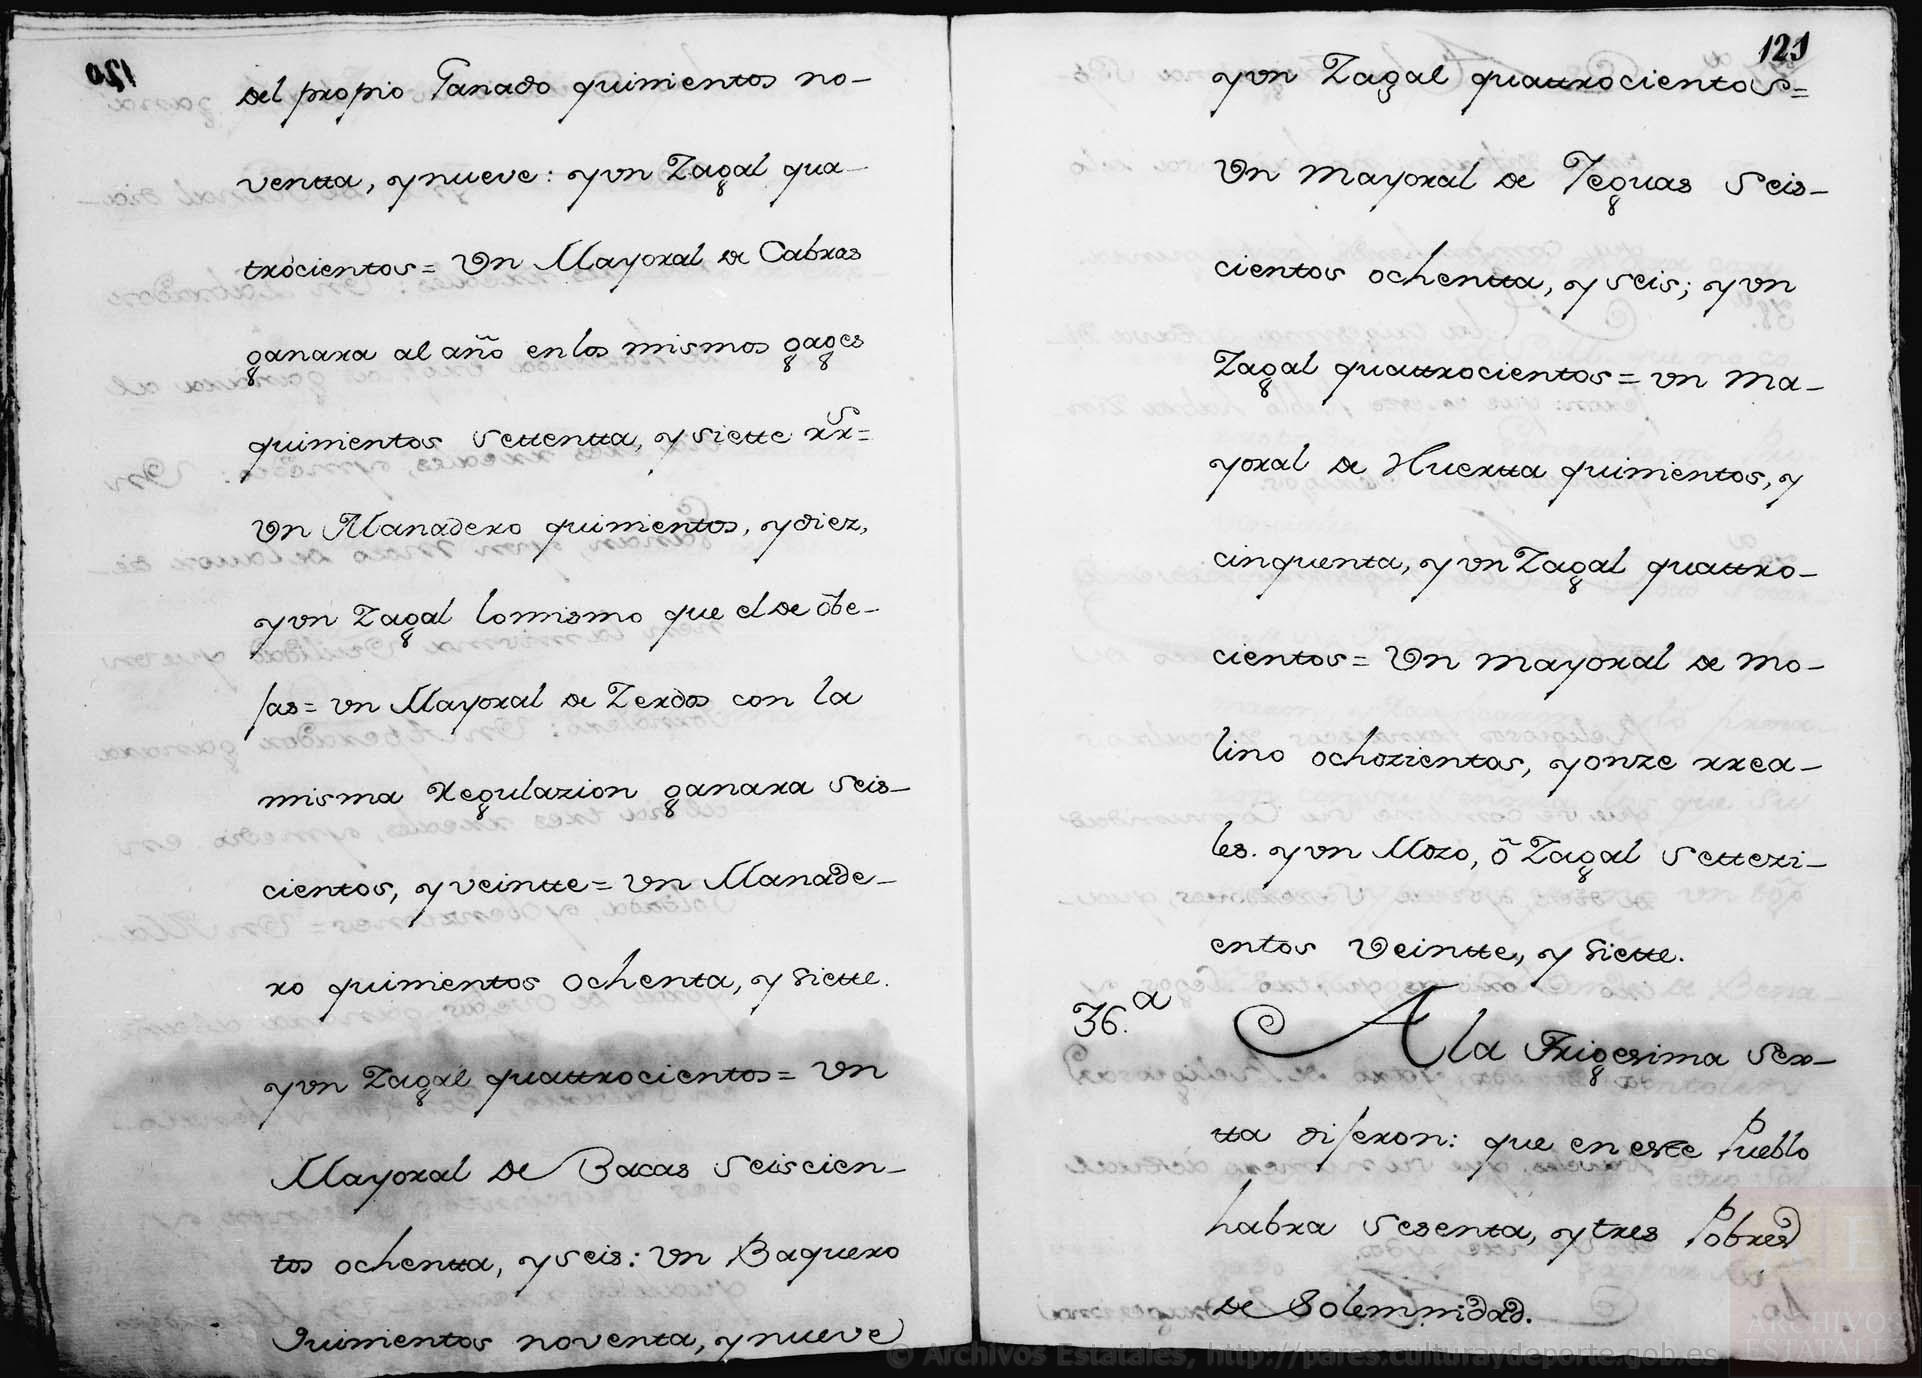 del propio Ganado quinientos no-
ventta, y nueve: y vn Zagal qua-
trocientos = Vn Mayoral de Cabras
ganara al año en los mismos gages
quinientos settentta, y siette rrs =
Vn Manadero quinientos, y diez,
y vn Zagal lo mismo que el de obe-
jas = vn Mayoral de Zerdos con la
misma Regulazion ganara seis-
cientos, y veintte = vn Manade-
ro quinientos ochenta, y siette.
y vn Zagal quattrocientos = Vn
Mayoral de Bacas seiscien-
tos ochentta, y seis: vn Baquero
Quinientos noventa, y nueve
121
y vn Zagal quattrocientos =
Vn Mayoral de Yeguas seis-
cientos ochentta, y seis; y vn
Zagal quattrocientos = vn Ma-
yoral de Huertta quinientos, y
cinquenta, y vn Zagal quattro-
cientos = Vn mayoral de Mo-
lino ochozientos, y onze rrea-
les. y vn Mozo, ô Zagal settezi-
entos veintte, y siette.
36.a A la Trigesima sex-
tta dijeron: que en este Pueblo
habra sesenta, y tres Pobres
de Solemnidad.
© Archivos Estatales, http://pares.culturaydeporte.gob.es
ARCHIVOS
ESTATALES